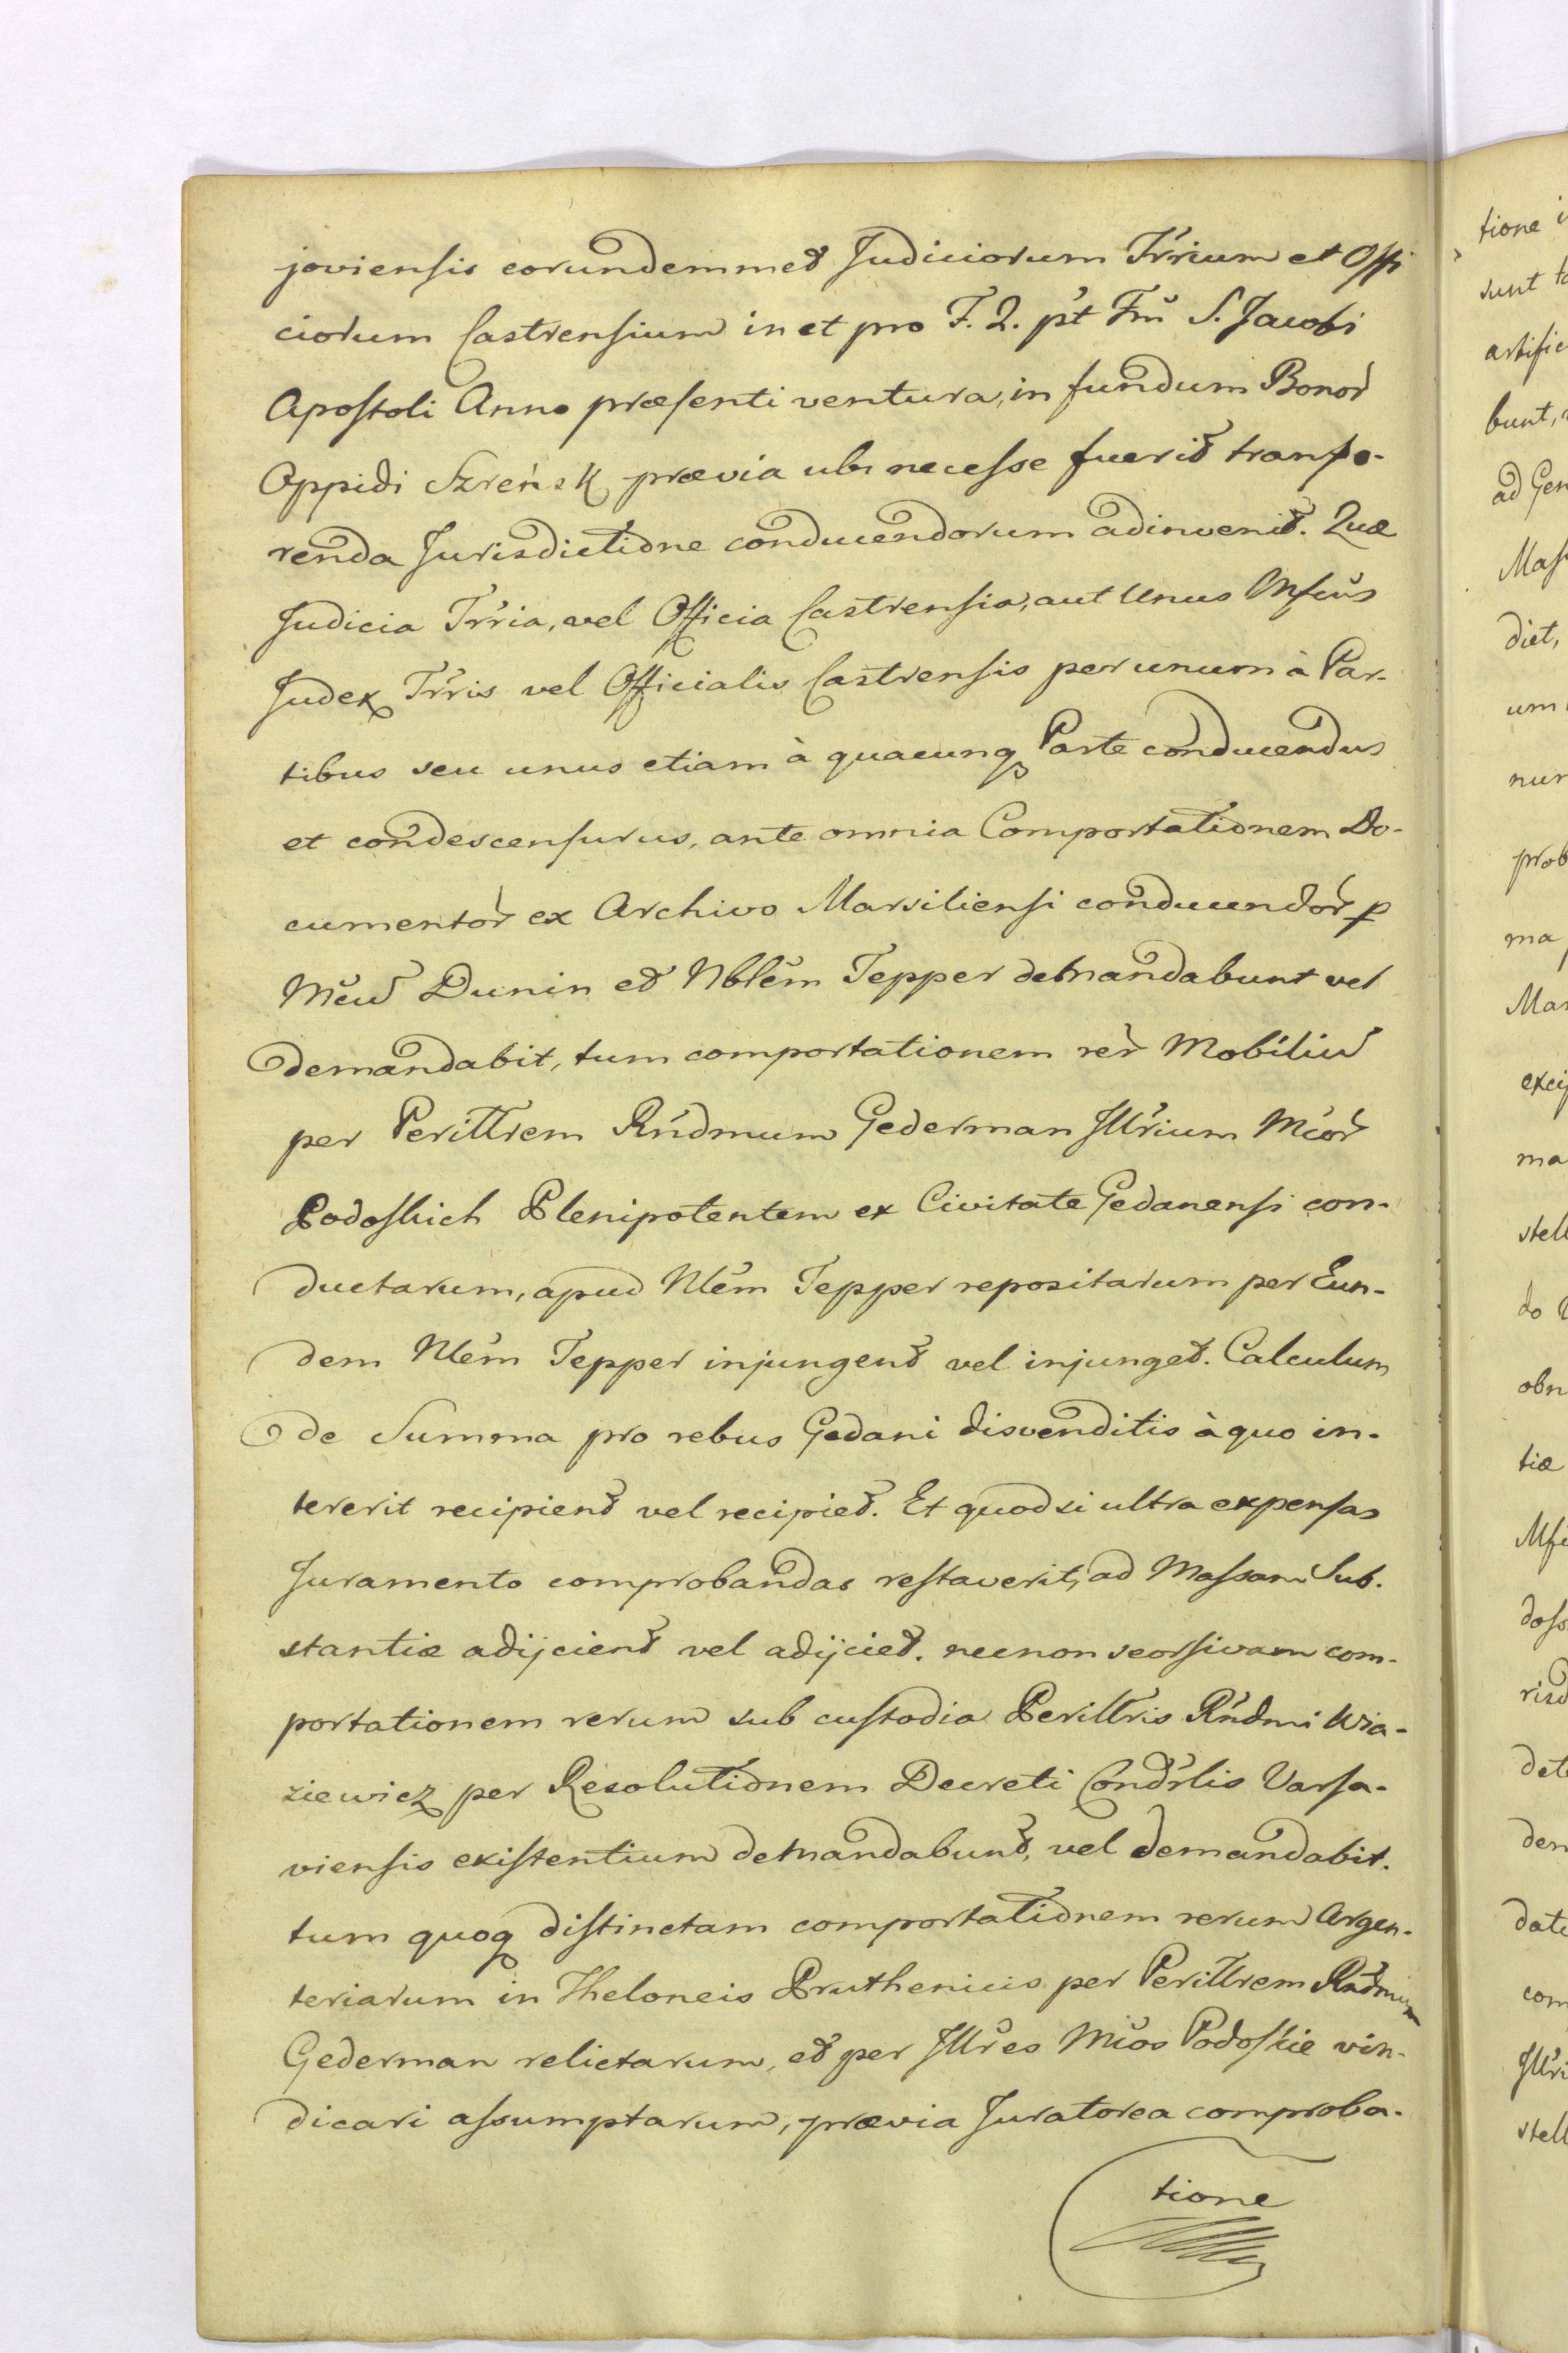 joviensis eorundemmet Judiciorum Trrium et Offi
ciorum Castrensium in et pro F. 2. pt Fm S. Jacobi
Apostoli Anno præsenti ventura, in fundum Bonor
Oppidi Szreńsk prævia ubi necesse fuerit transfe-
renda Jurisdictione conducendorum adinvenit. Quæ
Judicia Trria, vel Officia Castrensia, aut Unus Mfcus
Judex Trris vel Officialis Castrensis per unum à Par-
tibus seu unus etiam à quacunq Parte conducendus
et condescensurus, ante omnia Comportationem Do-
cumentor ex Archivo Marsiliensi conducendor p
Mcum Dunin et Nblem Tepper demandabunt vel
demandabit, tum comportationem rer Mobilium
per Perillrem Rndmum Gederman Illrium Mcor
Podoskich Plenipotentem ex Civitate Gedanensi con-
ductarum, apud Nlem Tepper repositarum per Eun-
dem Nlem Tepper injungent vel injunget. Calculum
de Summa pro rebus Gedani disvenditis à quo in-
tererit recipient vel recipiet. Et quod si ultra expensas
Juramento comprobandas restaverit, ad Massam Sub-
stantiæ adijcient vel adijciet. necnon seorsivam com-
portationem rerum sub custodia Perillris Rndmi Wia-
ziewicz per Resolutionem Decreti Condrlis Varsa-
viensis existentium demandabunt, vel demandabit.
tum quoq distinctam comportationem rerum Argen-
teriarum in Theloneis Pruthenicis per Perillrem Rndmum
Gederman relictarum, et per Illres Mcos Podoskie vin-
dicari assumptarum, prævia Juratorea comproba-
tione
tione
sunt
artific
bunt,
ad Gen
Mass
diet,
um
nur
prob
ma
Mar
excip
ma
stell
do
obn
tiæ
Mfc
doss
risd
det
dem
date
com
Illri
stell